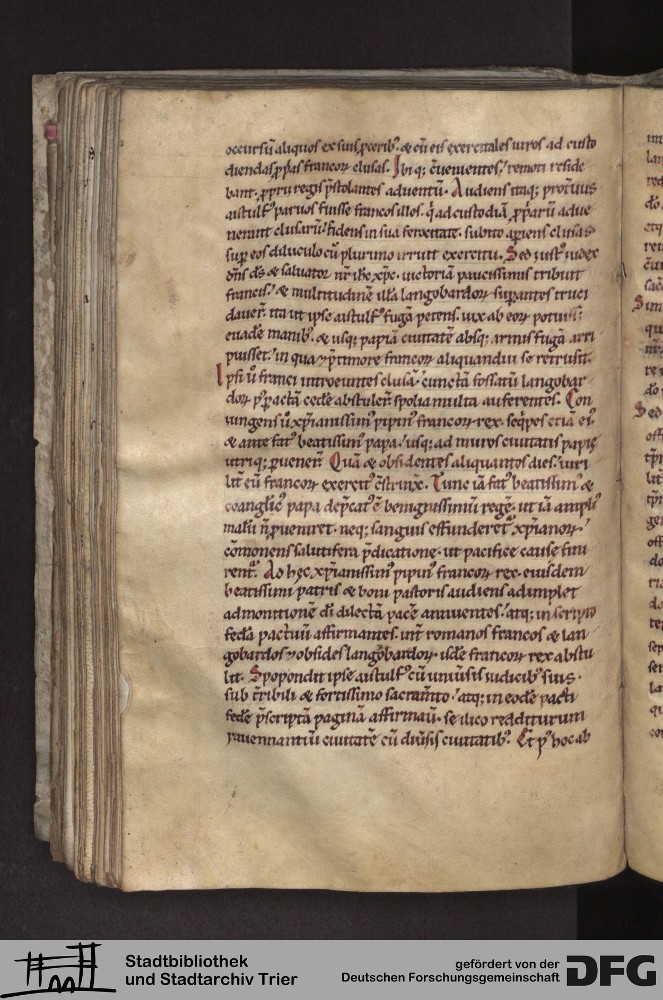 occursū aliquos ex suis ꝓcerib᷒ & cū eis exercitales uiros ad custo
diendas ꝓp̄as francoꝝ clusas. Ibiq; c̄uenientes. remoti reside
bant. ꝓprii regis p̄stolantes aduentū. Audiens itaq; proteruus
aistulf᷒ paruos fuisse francos illos. q̄ ad custodiā ꝓp̄arū adue
nerunt clusarū. fidens in sua ferocitate. subito aperiens clusas
sup eos diluculo cū plurimo irruit exercitu. Sed iust᷒ iudex
dn̄s ds̄ & saluator nr̄ ihc xp̄c. uictoriā paucissimis tribuit
francis. & multitudinē illā langobardoꝝ supantes truci
dauer̄. ita ut ipse aistulf᷒ fugā petens. uix ab eoꝝ potuis;
euadē manib᷒. & usq; papiā ciuitatē absq; armis fugā arri
puisset. in qua & p̄ timore francoꝝ aliquandiu se retrusit.
Ipsi ū franci introeuntes clusā. cunctā fossatū langobar
doꝝ p᷒ pactā cedē abstuler̄ spolia multa auferentes. Con
iungens ū xp̄ianissim᷒ pipin᷒ francoꝝ rex. seq̄pes etiā ei᷒
& ante fat᷒ beatissim᷒ papa. usq; ad muros ciuitatis papie
utriq; ꝓuener̄. Quā & obsidentes aliquantos dies. uiri
lit̄ eū francoꝝ exercit᷒ c̄strinx̄. Tunc iā fat᷒ beatissim᷒ &
coanglic᷒ papa dep̄cat᷒ ē benignissimū regē. ut iā ampli᷒
malū n̄ ꝓueniret. neq; sanguis effunderet᷒ xp̄ianoꝝ.
cōmonens salutifera p̄dicatione. ut pacifice cause fini
rent᷒. Ad hec xp̄ianissim᷒ pipin᷒ francoꝝ rex. eiusdem
beatissimi patris & boni pastoris audiens adimplet
admonitionē dī dilectā pacē annuentes. atq; in scripto
federa pactuū affirmantes. int̄ romanos francos & lan
gobardos & obsides langobardoꝝ. isdē francoꝝ rex abstu
lit. Spopondit ipse aistulf᷒ cū uniūsis iudicib᷒ suis.
sub t̄ribili & fortissimo sacram̄to. atq; in eodē pacti
federe p̄scriptā paginā affirmauit. se ilico redditurum
rauennantiū ciuitatē cū diūsis ciuitatib᷒. Et p᷒ hoc ab
Stadtbibliothek
und Stadtarchiv Trier
gefördert von der
Deutschen Forschungsgemeinschaft
DFG